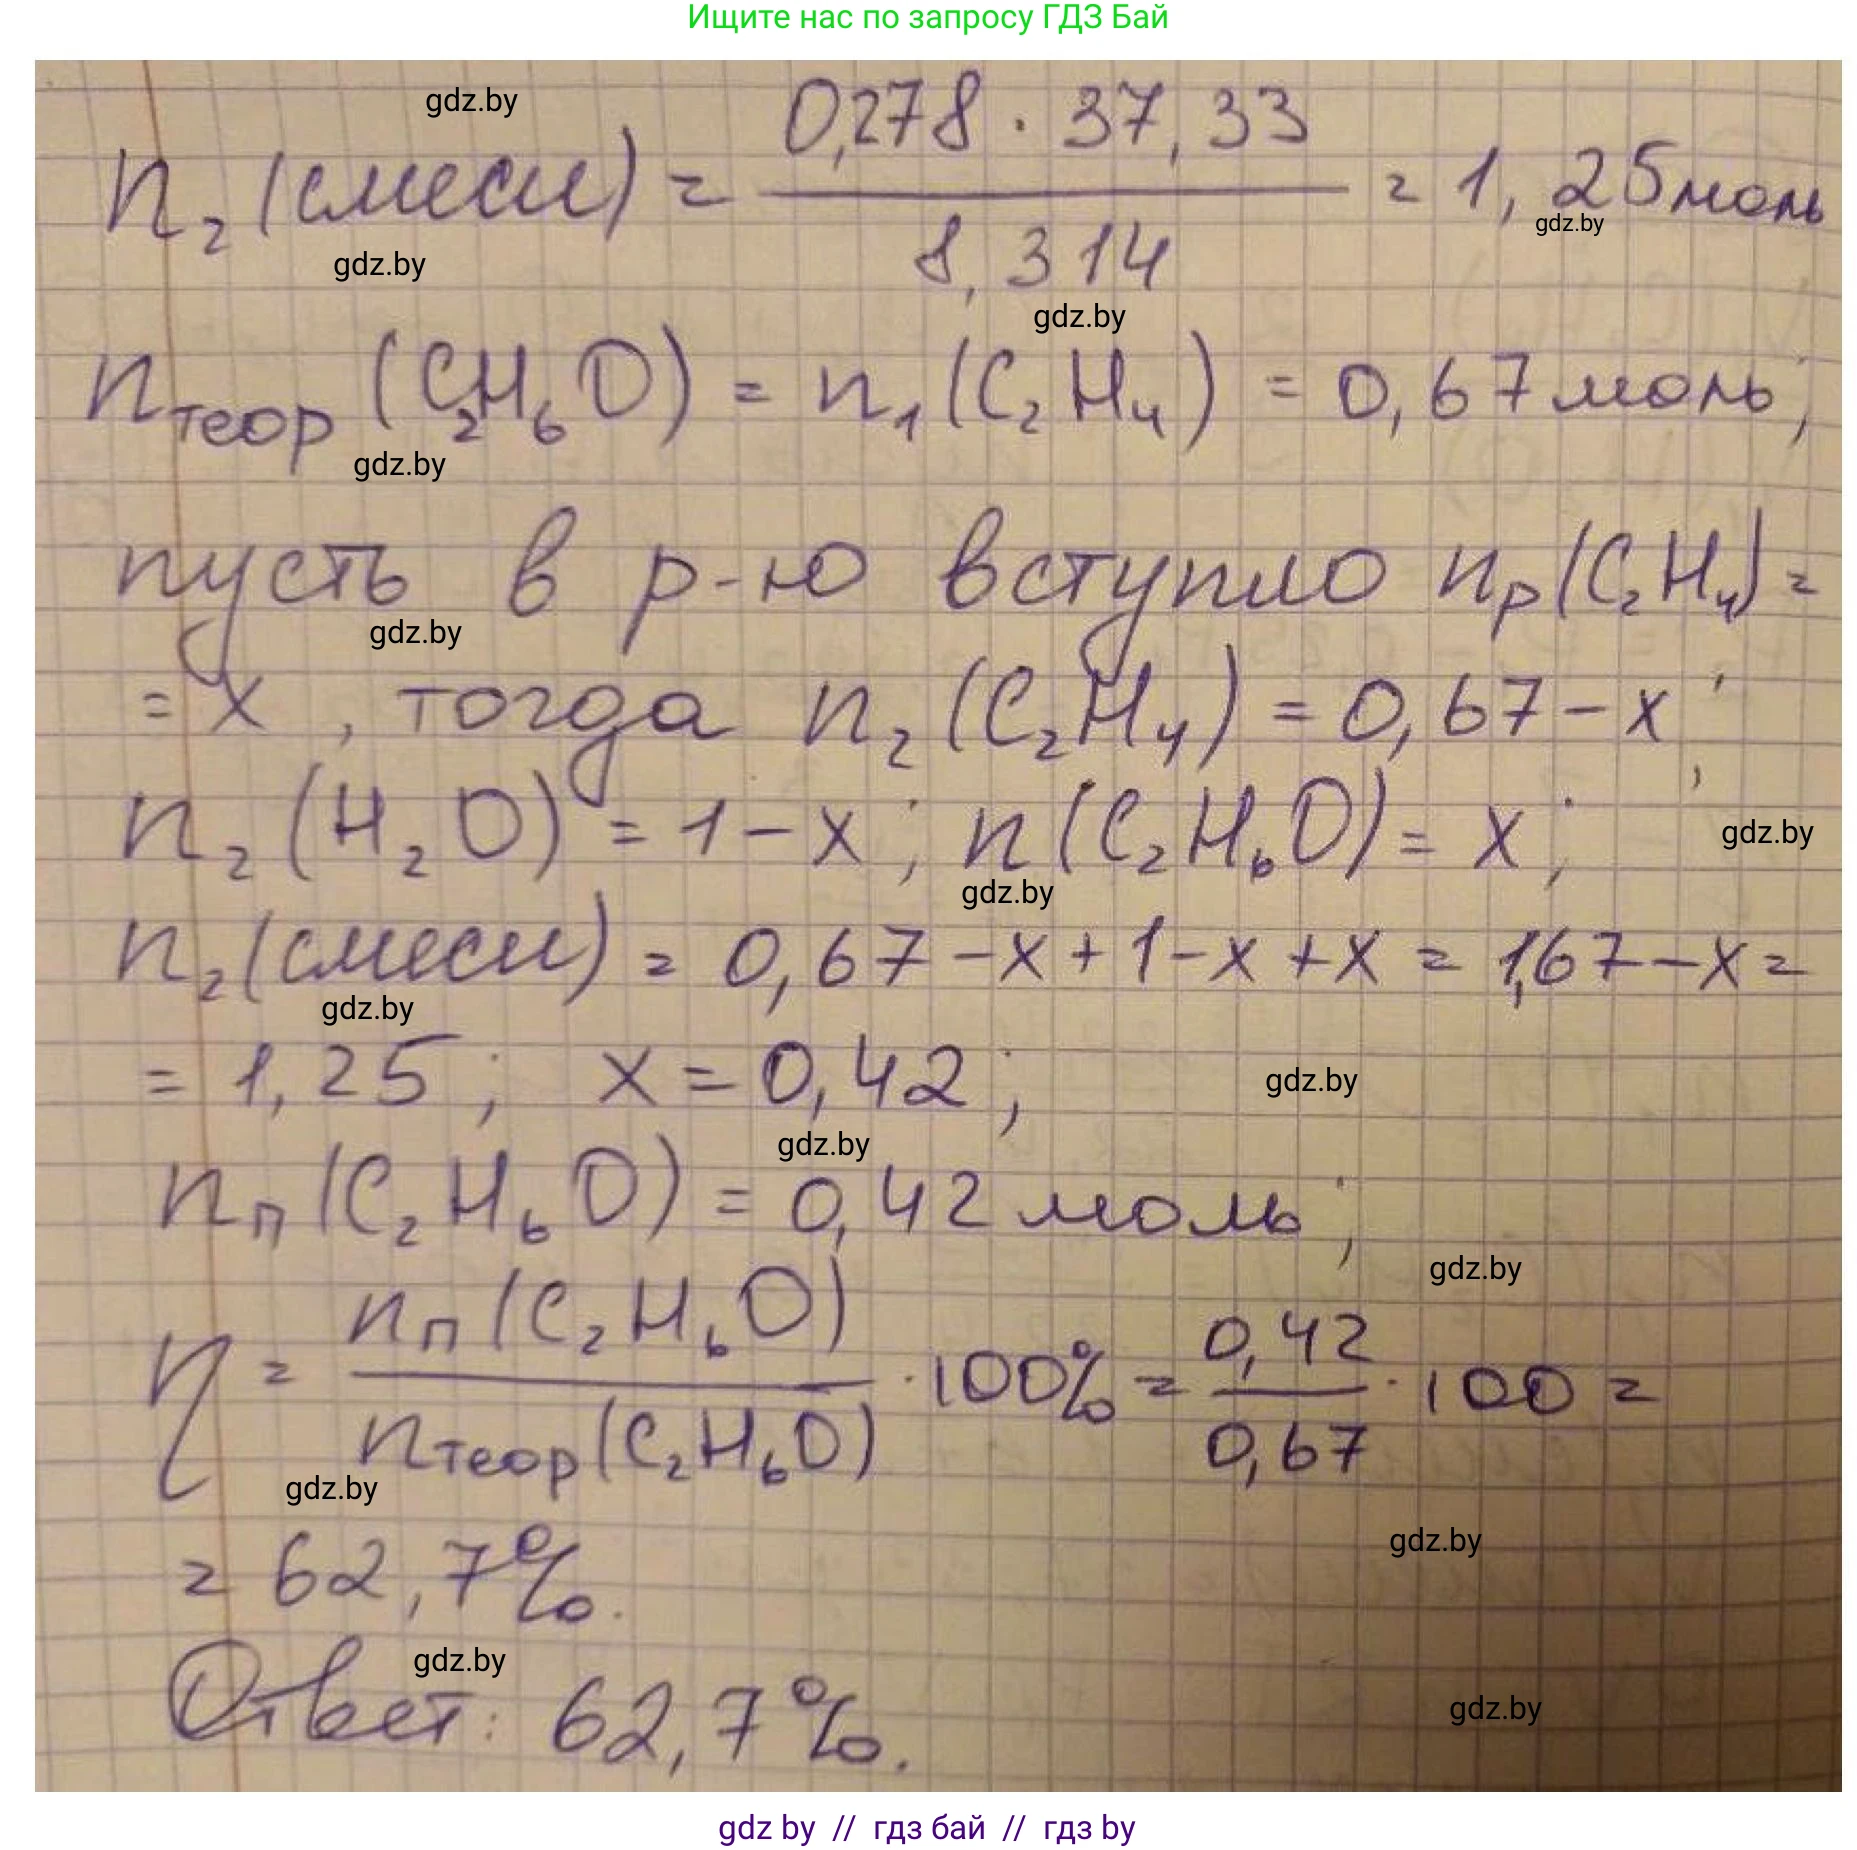 Ищите нас по запросу ГДЗ Бай
gdz.by
n₂(смеси) = (0,278 · 37,33) / 8,314 = 1,25 моль
gdz.by
gdz.by
gdz.by
nтеор (C₂H₆O) = n₁(C₂H₄) = 0,67 моль;
gdz.by
пусть в р-ю вступило nр(C₂H₄) =
gdz.by
= x, тогда n₂(C₂H₄) = 0,67 – x;
n₂(H₂O) = 1 – x; n(C₂H₆O) = x;
gdz.by
gdz.by
n₂(смеси) = 0,67 – x + 1 – x + x = 1,67 – x =
gdz.by
= 1,25; x = 0,42;
gdz.by
gdz.by
nп(C₂H₆O) = 0,42 моль;
gdz.by
η = nп(C₂H₆O) / nтеор(C₂H₆O) · 100% = 0,42 / 0,67 · 100 =
gdz.by
gdz.by
= 62,7%.
gdz.by
Ответ: 62,7%.
gdz.by
gdz by // гдз бай // гдз by